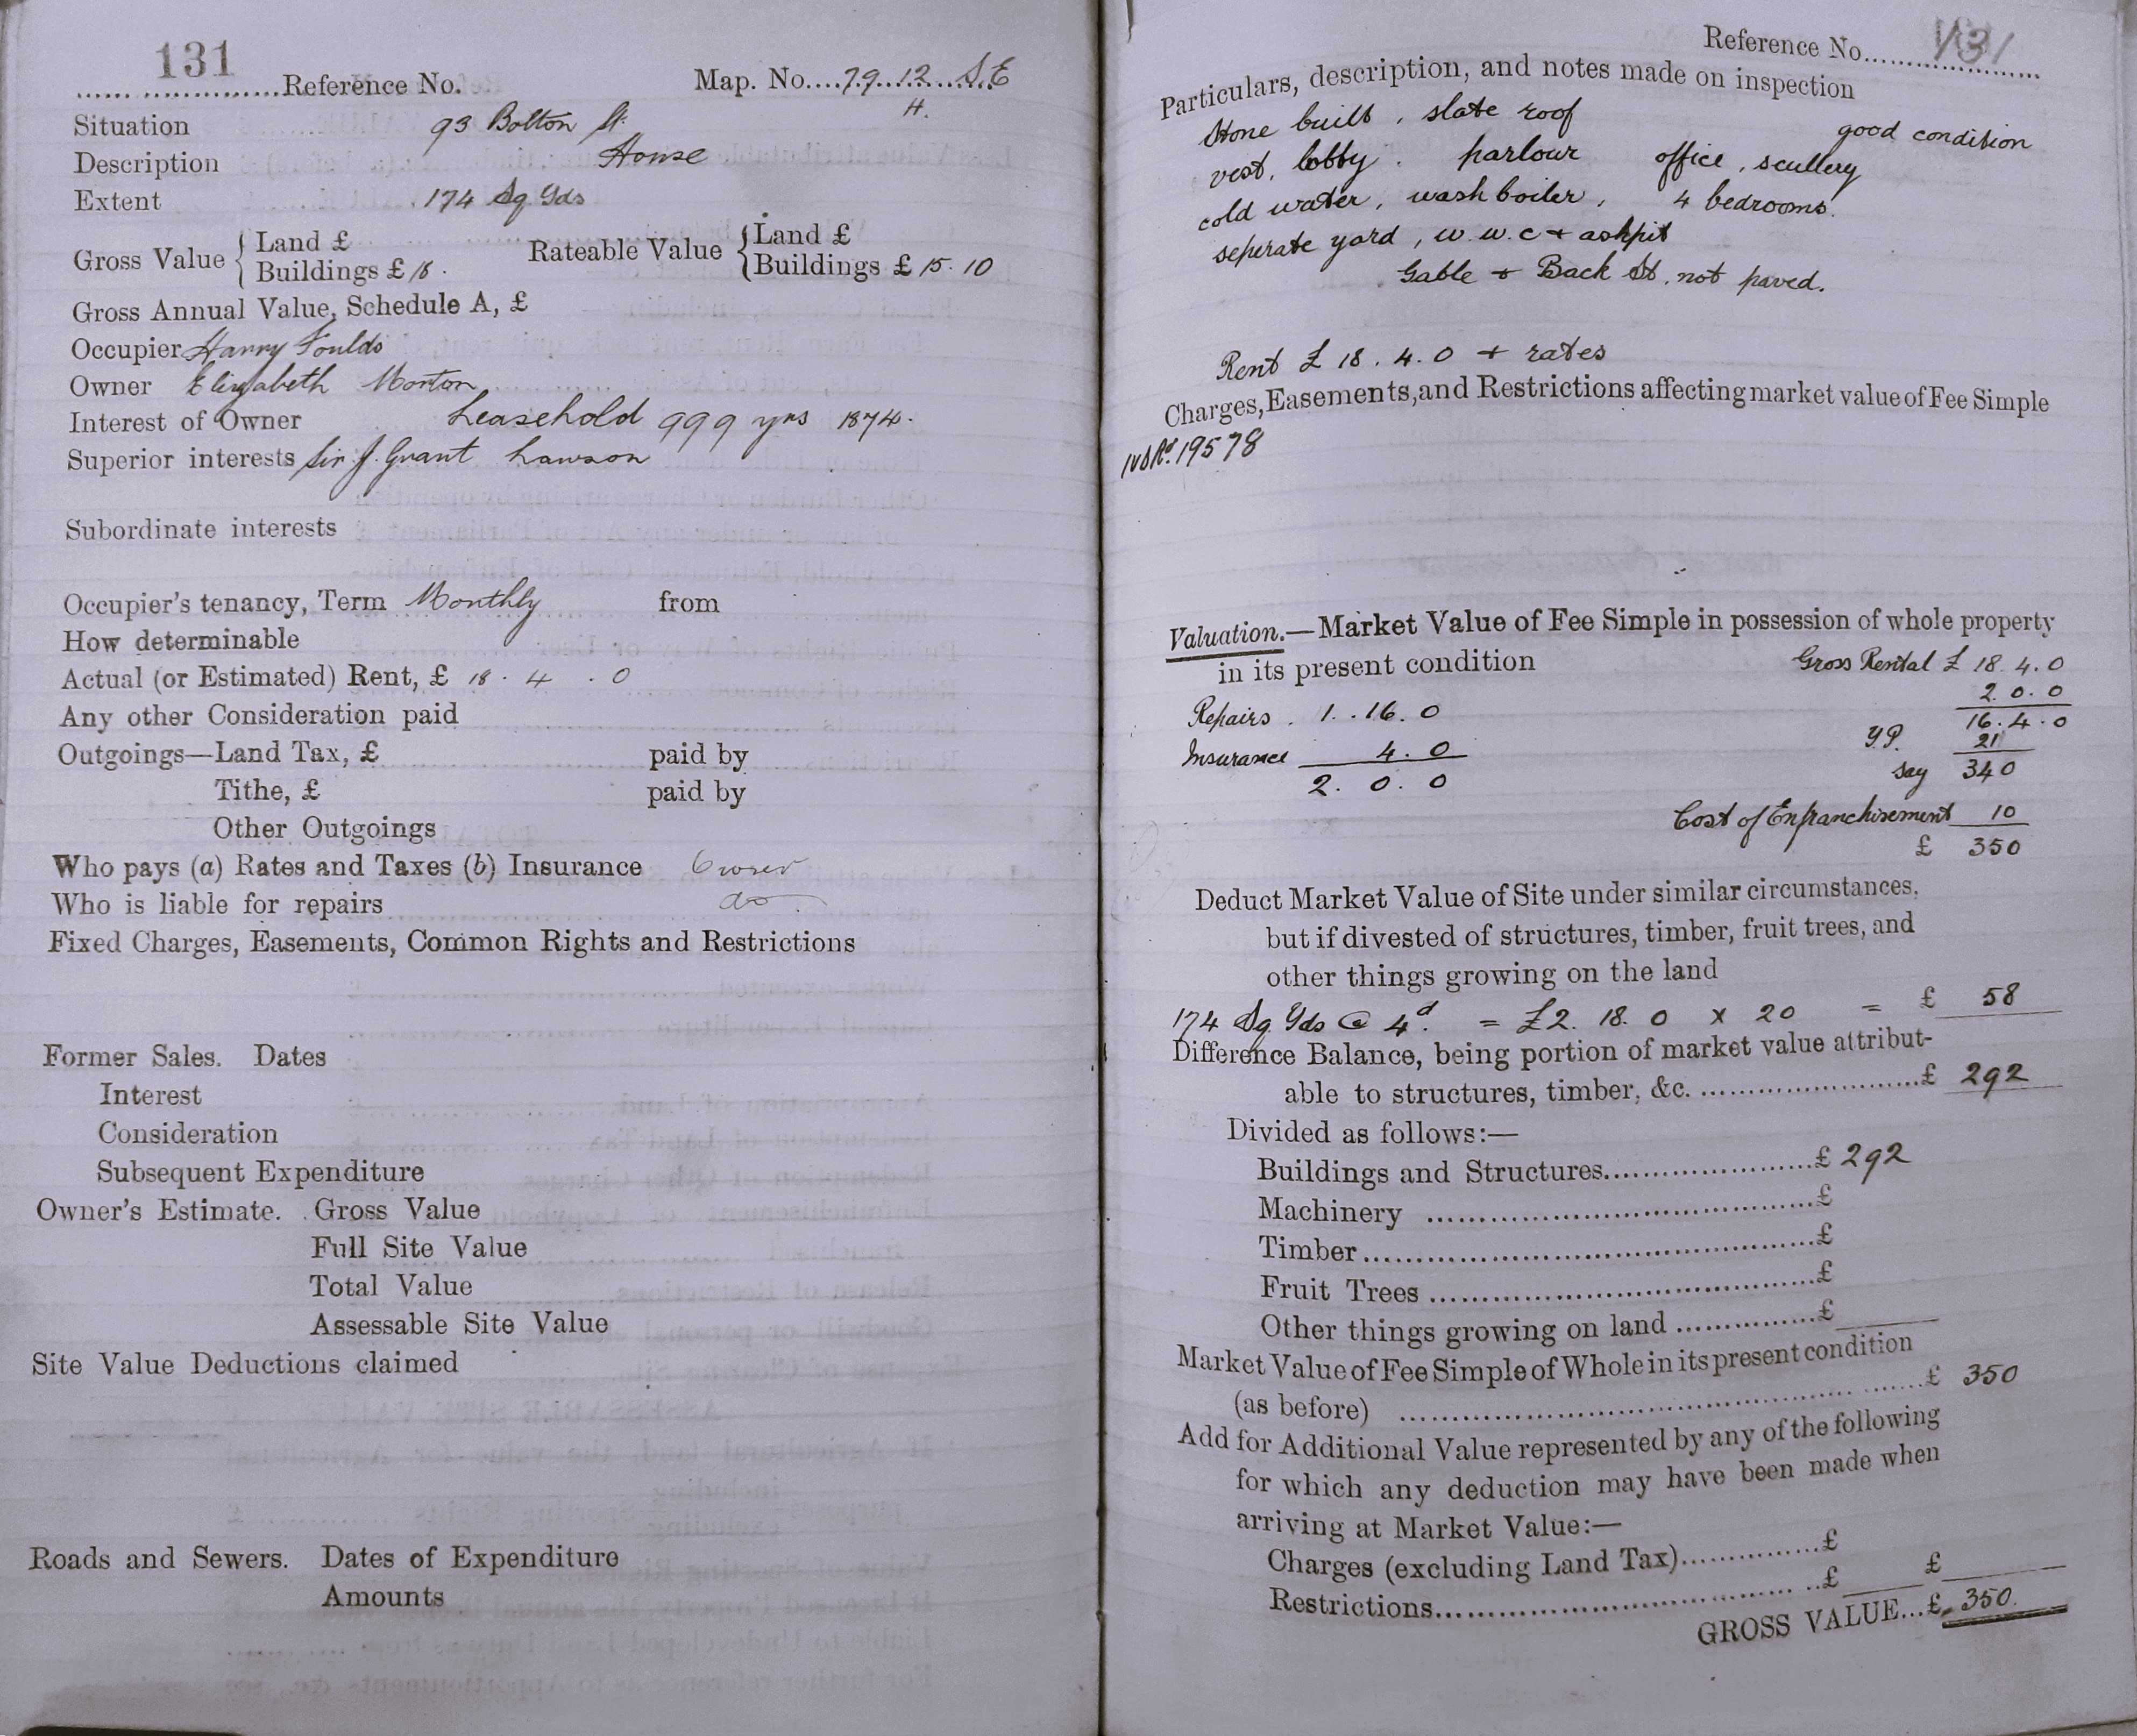 131
Reference No. Map. No....79..12...S.E
H.
Situation 93 Bolton St.
Description House
Extent 174 Sq Yds
Gross Value { Land £ Rateable Value { Land £
Buildings £ 18. Buildings £ 15. 10
Gross Annual Value, Schedule A, £
Occupier Harry Foulds
Owner Elizabeth Morton
Interest of Owner Leasehold 999 yrs 1874.
Superior interests Sir J. Grant Lawson
Subordinate interests
Occupier's tenancy, Term Monthly from
How determinable
Actual (or Estimated) Rent, £ 18. 4. 0
Any other Consideration paid
Outgoings—Land Tax, £ paid by
Tithe, £ paid by
Other Outgoings
Who pays (a) Rates and Taxes (b) Insurance Owner
Who is liable for repairs do
Fixed Charges, Easements, Common Rights and Restrictions
Former Sales. Dates
Interest
Consideration
Subsequent Expenditure
Owner's Estimate. Gross Value
Full Site Value
Total Value
Assessable Site Value
Site Value Deductions claimed
Roads and Sewers. Dates of Expenditure
Amounts
Reference No. 131
Particulars, description, and notes made on inspection
Stone built, slate roof good condition
vest. lobby. parlour office, scullery
cold water, wash boiler, 4 bedrooms.
seperate yard, w.w.c + ashpit
Gable + Back St. not paved.
Rent £ 18. 4. 0 + rates
Charges, Easements, and Restrictions affecting market value of Fee Simple
19578
Valuation.—Market Value of Fee Simple in possession of whole property
in its present condition Gross Rental £ 18. 4. 0
2. 0. 0
Repairs. 1. 16. 0 16. 4. 0
Insurance 4. 0 Y.P. 21
2. 0. 0 say 340
Cost of Enfranchisement 10
£ 350
Deduct Market Value of Site under similar circumstances,
but if divested of structures, timber, fruit trees, and
other things growing on the land
174 Sq Yds @ 4d. = £2. 18. 0 x 20 = £ 58
Difference Balance, being portion of market value attribut-
able to structures, timber, &c. ........................£ 292
Divided as follows:—
Buildings and Structures........................£ 292
Machinery ........................£
Timber........................£
Fruit Trees ........................£
Other things growing on land ................£
Market Value of Fee Simple of Whole in its present condition
(as before) ........................£ 350
Add for Additional Value represented by any of the following
for which any deduction may have been made when
arriving at Market Value:—
Charges (excluding Land Tax)................£
Restrictions........................£ £
GROSS VALUE...£ 350.